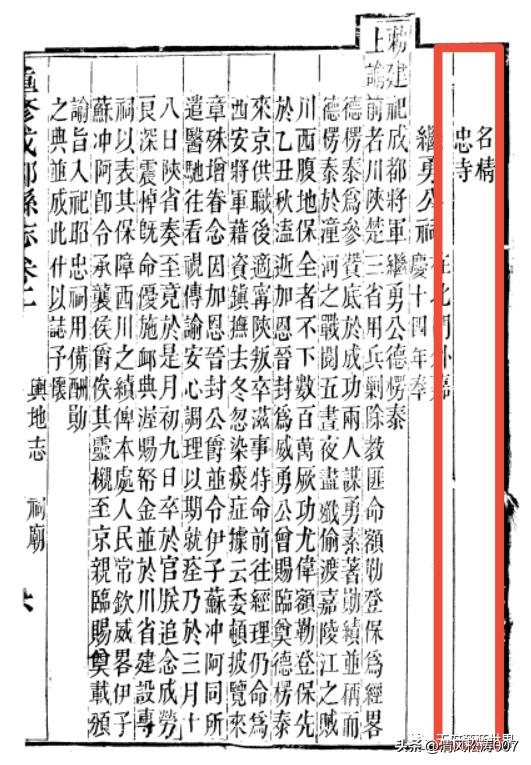 名精
忠寺
繼勇公祠 在北門外嘉
慶十四年奉
敕建祀成都將軍繼勇公德楞泰
上諭前者川陝楚三省用兵剿除教匪命額勒登保為經畧
德楞泰為參贊底於成功兩人謀勇素著勛績並稱而
德楞泰於潼河之戰閱五晝夜盡殲偷渡嘉陵江之賊
川西腹地保全者不下數百萬厥功尤偉額勒登保先
於乙丑秋溘逝加恩晉封為威勇公曾賜臨奠德楞泰
來京供職後適寧陝叛卒滋事特命前往經理仍命為
西安將軍藉資鎮撫去冬忽染痰症據云委頓披覽來
章殊增眷念因加恩晉封公爵並令伊子蘇冲阿同所
遣醫馳往看視傳諭安心調理以期就痊乃於三月十
八日陝省奏至竟於是月初九日卒於官朕追念成勞
良深震悼旣命優施卹典渥賜帑金並於川省建設專
祠以表其保障西川之績俾本處人民常欽威畧伊子
蘇冲阿卽令承襲侯爵俟其靈櫬至京親臨賜奠載頒
諭旨入祀昭忠祠用備酬勛
之典並成此什以誌予懷
重修成都縣志卷二
輿地志 祠廟 六
头条 @清风松涛007